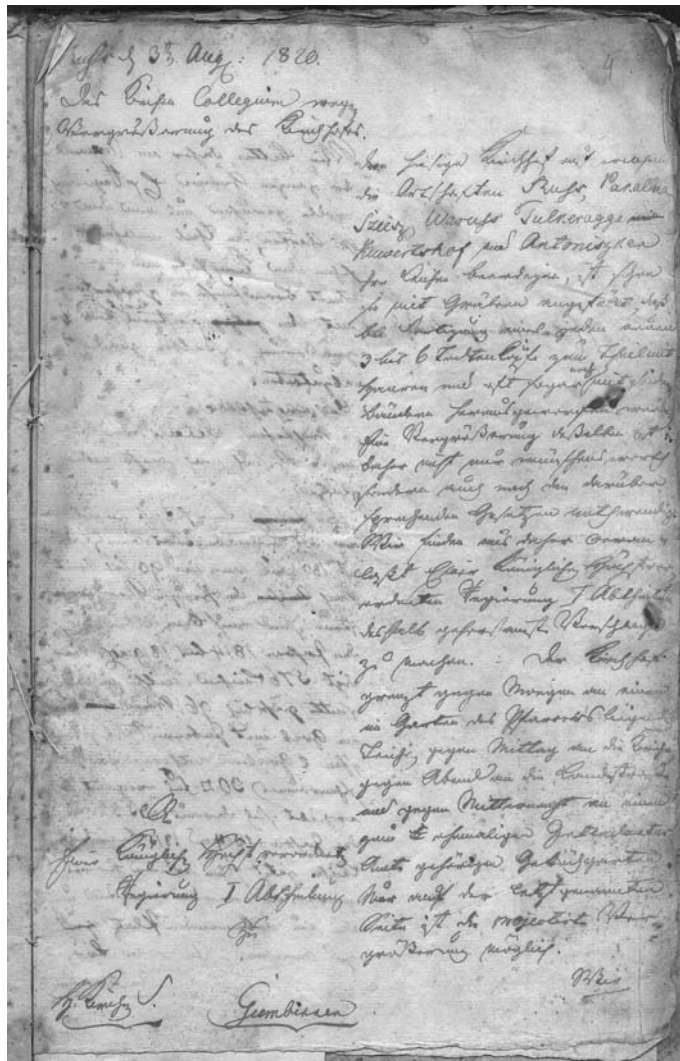 Ruhs d 3t. Aug: 1820.
4
Das Kirchen Collegium wegen
Vergrößerung des Kirchhofes.
Der hiesige Kirchhof auf welchem
die Ortschaften Ruhs, Pakallna
Sziesz, Waruhs Tulkeragge
Kuwertshof und Antoniszken
ihre Leichen beerdigen, ist schon
so mit Gräbern angefüllt, daß
bei Fertigung eines jeden neuen
3 bis 6 Todtenköpfe zum Theil mit
Haaren und oft sogar noch mit
Bändern herausgeworfen werden
Eine Vergrößerung deßelben ist
daher nicht nur wünschenswerth
sondern auch nach den darüber
sprechenden Gesetzen nothwendig.
Wir finden uns daher veran-
laßt Einer Königlichen Hochver-
ordneten Regierung I Abtheilung
deshalb gehorsamst Vorschläge
zu machen. Der Kirchhof
grenzt gegen Morgen an einen
im Garten des Pfarrers liegenden
Teich, gegen Mittag an die Kirche
gegen Abend an die Landstraße
und gegen Mitternacht an einen
zum ehmaligen
Amts gehörigen Gekochgarten
Nur auf der letztgenannten
Seite ist die projectirte Ver-
größerung möglich.
Wir
An
Eine Königliche Hochverordnete
Regierung I Abtheilung
zu
Gumbinnen